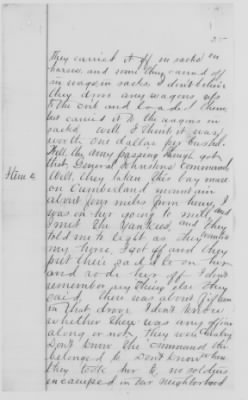 25
They carried it off in sacks on
horses, and some they carried off
in wagon sacks. I don't believe
they drove any wagons up
to the crib and loaded them,
but carried it to the wagons in
sacks. Well I think it was
worth one dollar per bushel.
Well the army passing through got
that, General Command
Item 2 Well, they taken the bay mare
on Cumberland mountain
about four miles from home, I
was on her going to mill, and
I met the Yankees, and they
told me to light as they
my horse, I got off and they
put their saddle on her
and rode her off I don't
remember any thing else they
said, there was about fifteen
in that drove I don't know
whether there was any officer
along or not. They were Cavalry
Don't know the command they
belonged to Don't know where
they took her to, no soldiers
encamped in our neighborhood